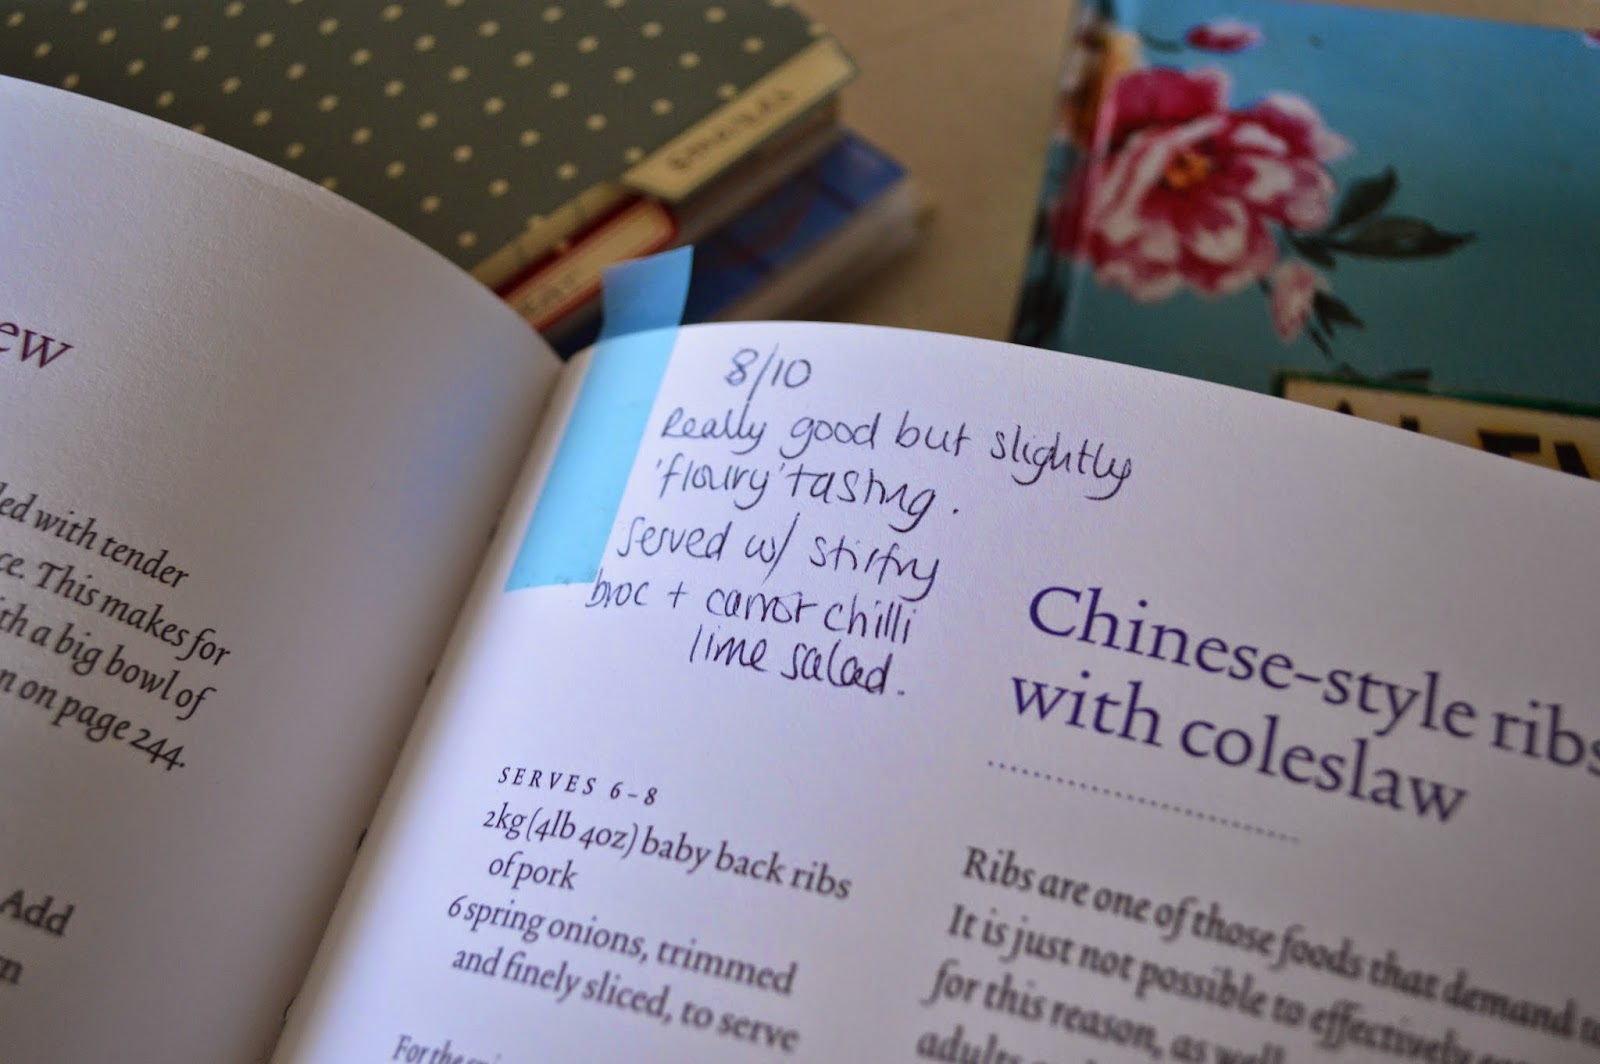 ew
led with tender
ce. This makes for
ith a big bowl of
n on page 244.
Add
8/10
Really good but slightly
'floury' tasting.
Served w/ stirfry
broc + carrot chilli
lime salad.
Chinese-style ribs
with coleslaw
SERVES 6–8
2kg (4lb 4oz) baby back ribs
of pork
6 spring onions, trimmed
and finely sliced, to serve
For the
Ribs are one of those foods that demand
It is just not possible to effectively
for this reason, as well
adults